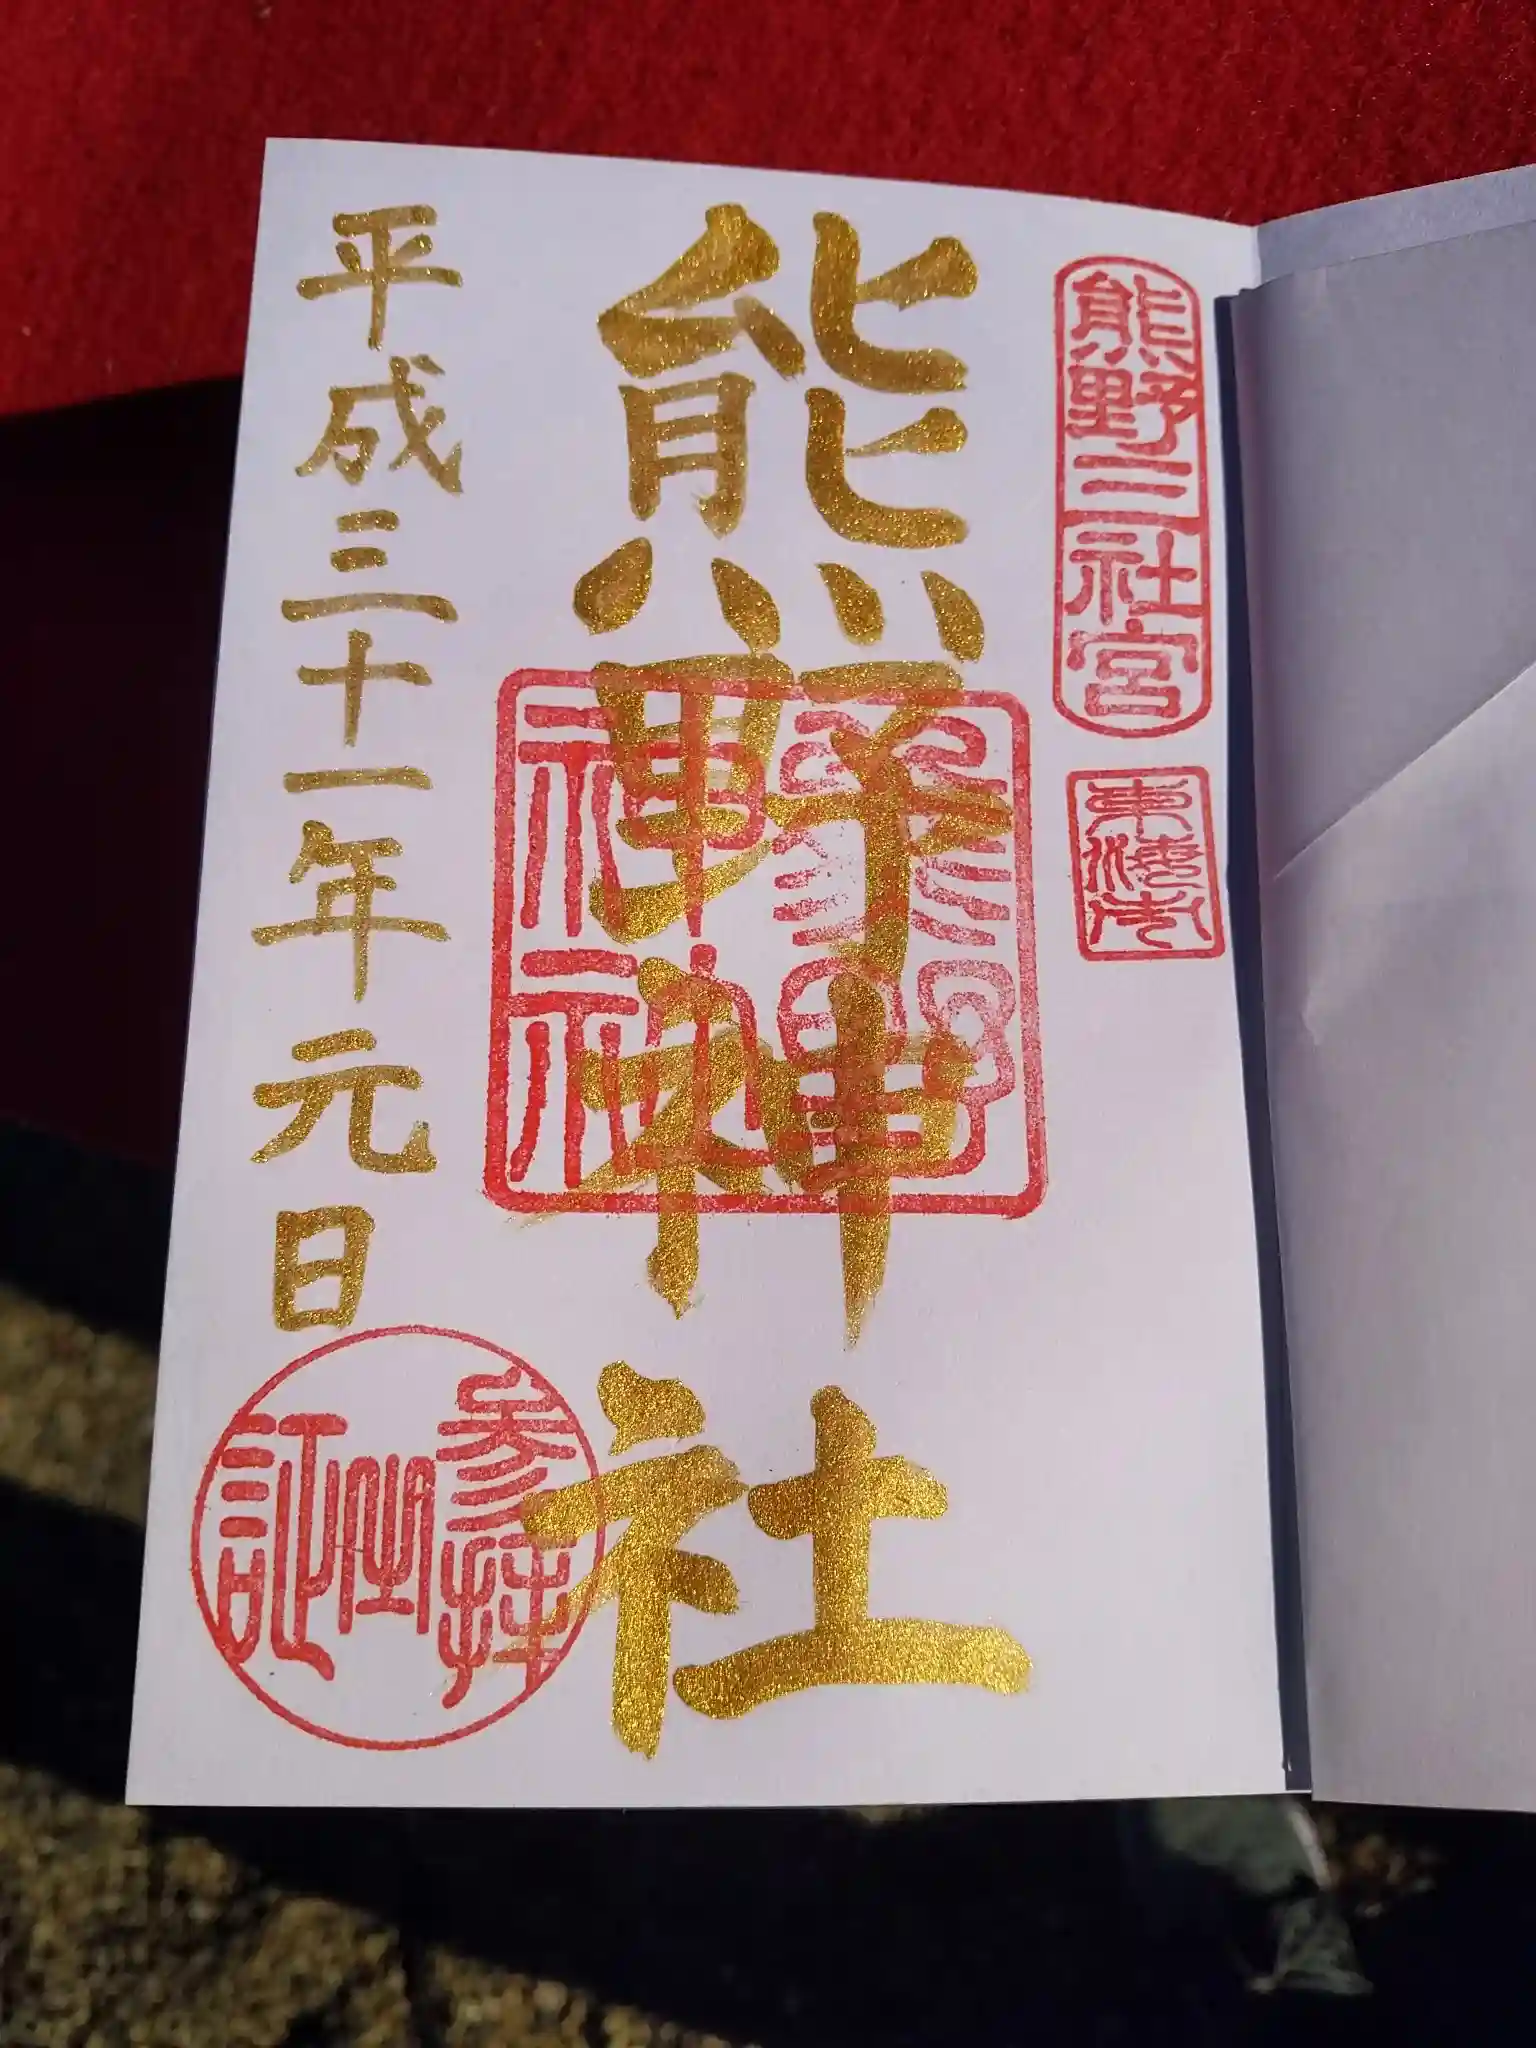 熊野三社宮
東海市
熊野神社
熊野
神社
平成三十一年元日
参拝
之
証